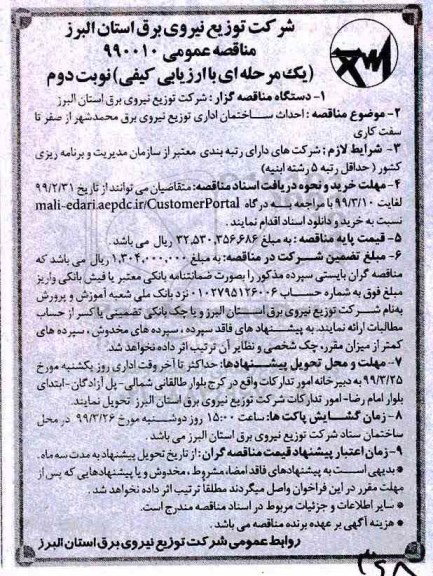 شرکت توزیع نیروی برق استان البرز
مناقصه عمومی ۹۹۰۰۱۰
(یک مرحله ای با ارزیابی کیفی) نوبت دوم
۱- دستگاه مناقصه گزار: شرکت توزیع نیروی برق استان البرز
۲- موضوع مناقصه: احداث ساختمان اداری توزیع نیروی برق محمدشهر از صفر تا
سفت کاری
۳- شرایط لازم: شرکت های دارای رتبه بندی معتبر از سازمان مدیریت و برنامه ریزی
کشور (حداقل رتبه ۵ رشته ابنیه)
۴- مهلت خرید و نحوه دریافت اسناد مناقصه: متقاضیان می توانند از تاریخ ۹۹/۲/۳۱
لغایت ۹۹/۳/۱۰ با مراجعه به درگاه mali-edari.aepdc.ir/CustomerPortal
نسبت به خرید و دانلود اسناد اقدام نمایند.
۵- قیمت پایه مناقصه: به مبلغ ۳۲,۵۳۰,۳۵۶,۶۸۶ ریال می باشد.
۶- مبلغ تضمین شرکت در مناقصه: به مبلغ ۱,۳۰۴,۰۰۰,۰۰۰ ریال می باشد که
مناقصه گران بایستی سپرده مذکور را بصورت ضمانتنامه بانکی معتبر یا فیش بانکی واریز
مبلغ فوق به شماره حساب ۰۱۰۲۷۹۵۱۲۶۰۰۶ نزد بانک ملی شعبه آموزش و پرورش
به‌نام شرکت توزیع نیروی برق استان البرز و یا چک بانکی تضمینی یا کسر از حساب
مطالبات ارائه نمایند. به پیشنهاد های فاقد سپرده، سپرده های مخدوش، سپرده های
کمتر از میزان مقرر، چک شخصی و نظایر آن ترتیب اثر داده نخواهد شد.
۷- مهلت و محل تحویل پیشنهادها: حداکثر تا آخر وقت اداری روز یکشنبه مورخ
۹۹/۳/۲۵ به دبیرخانه امور تدارکات واقع در کرج بلوار طالقانی شمالی- پل آزادگان- ابتدای
بلوار امام رضا- امور تدارکات شرکت توزیع نیروی برق استان البرز تحویل نمایند.
۸- زمان گشایش پاکت ها: ساعت ۱۵:۰۰ روز دوشنبه مورخ ۹۹/۳/۲۶ در محل
ساختمان ستاد شرکت توزیع نیروی برق استان البرز می باشد.
۹- زمان اعتبار پیشنهاد قیمت مناقصه گران: از تاریخ تحویل پیشنهاد به مدت سه ماه.
● بدیهی است به پیشنهادهای فاقد امضاء، مشروط، مخدوش و یا پیشنهادهایی که پس از
مهلت مقرر در این فراخوان واصل میگردند مطلقاً ترتیب اثر داده نخواهد شد.
● سایر اطلاعات و جزئیات مربوط در اسناد مناقصه مندرج است.
● هزینه آگهی بر عهده برنده مناقصه می باشد.
روابط عمومی شرکت توزیع نیروی برق استان البرز